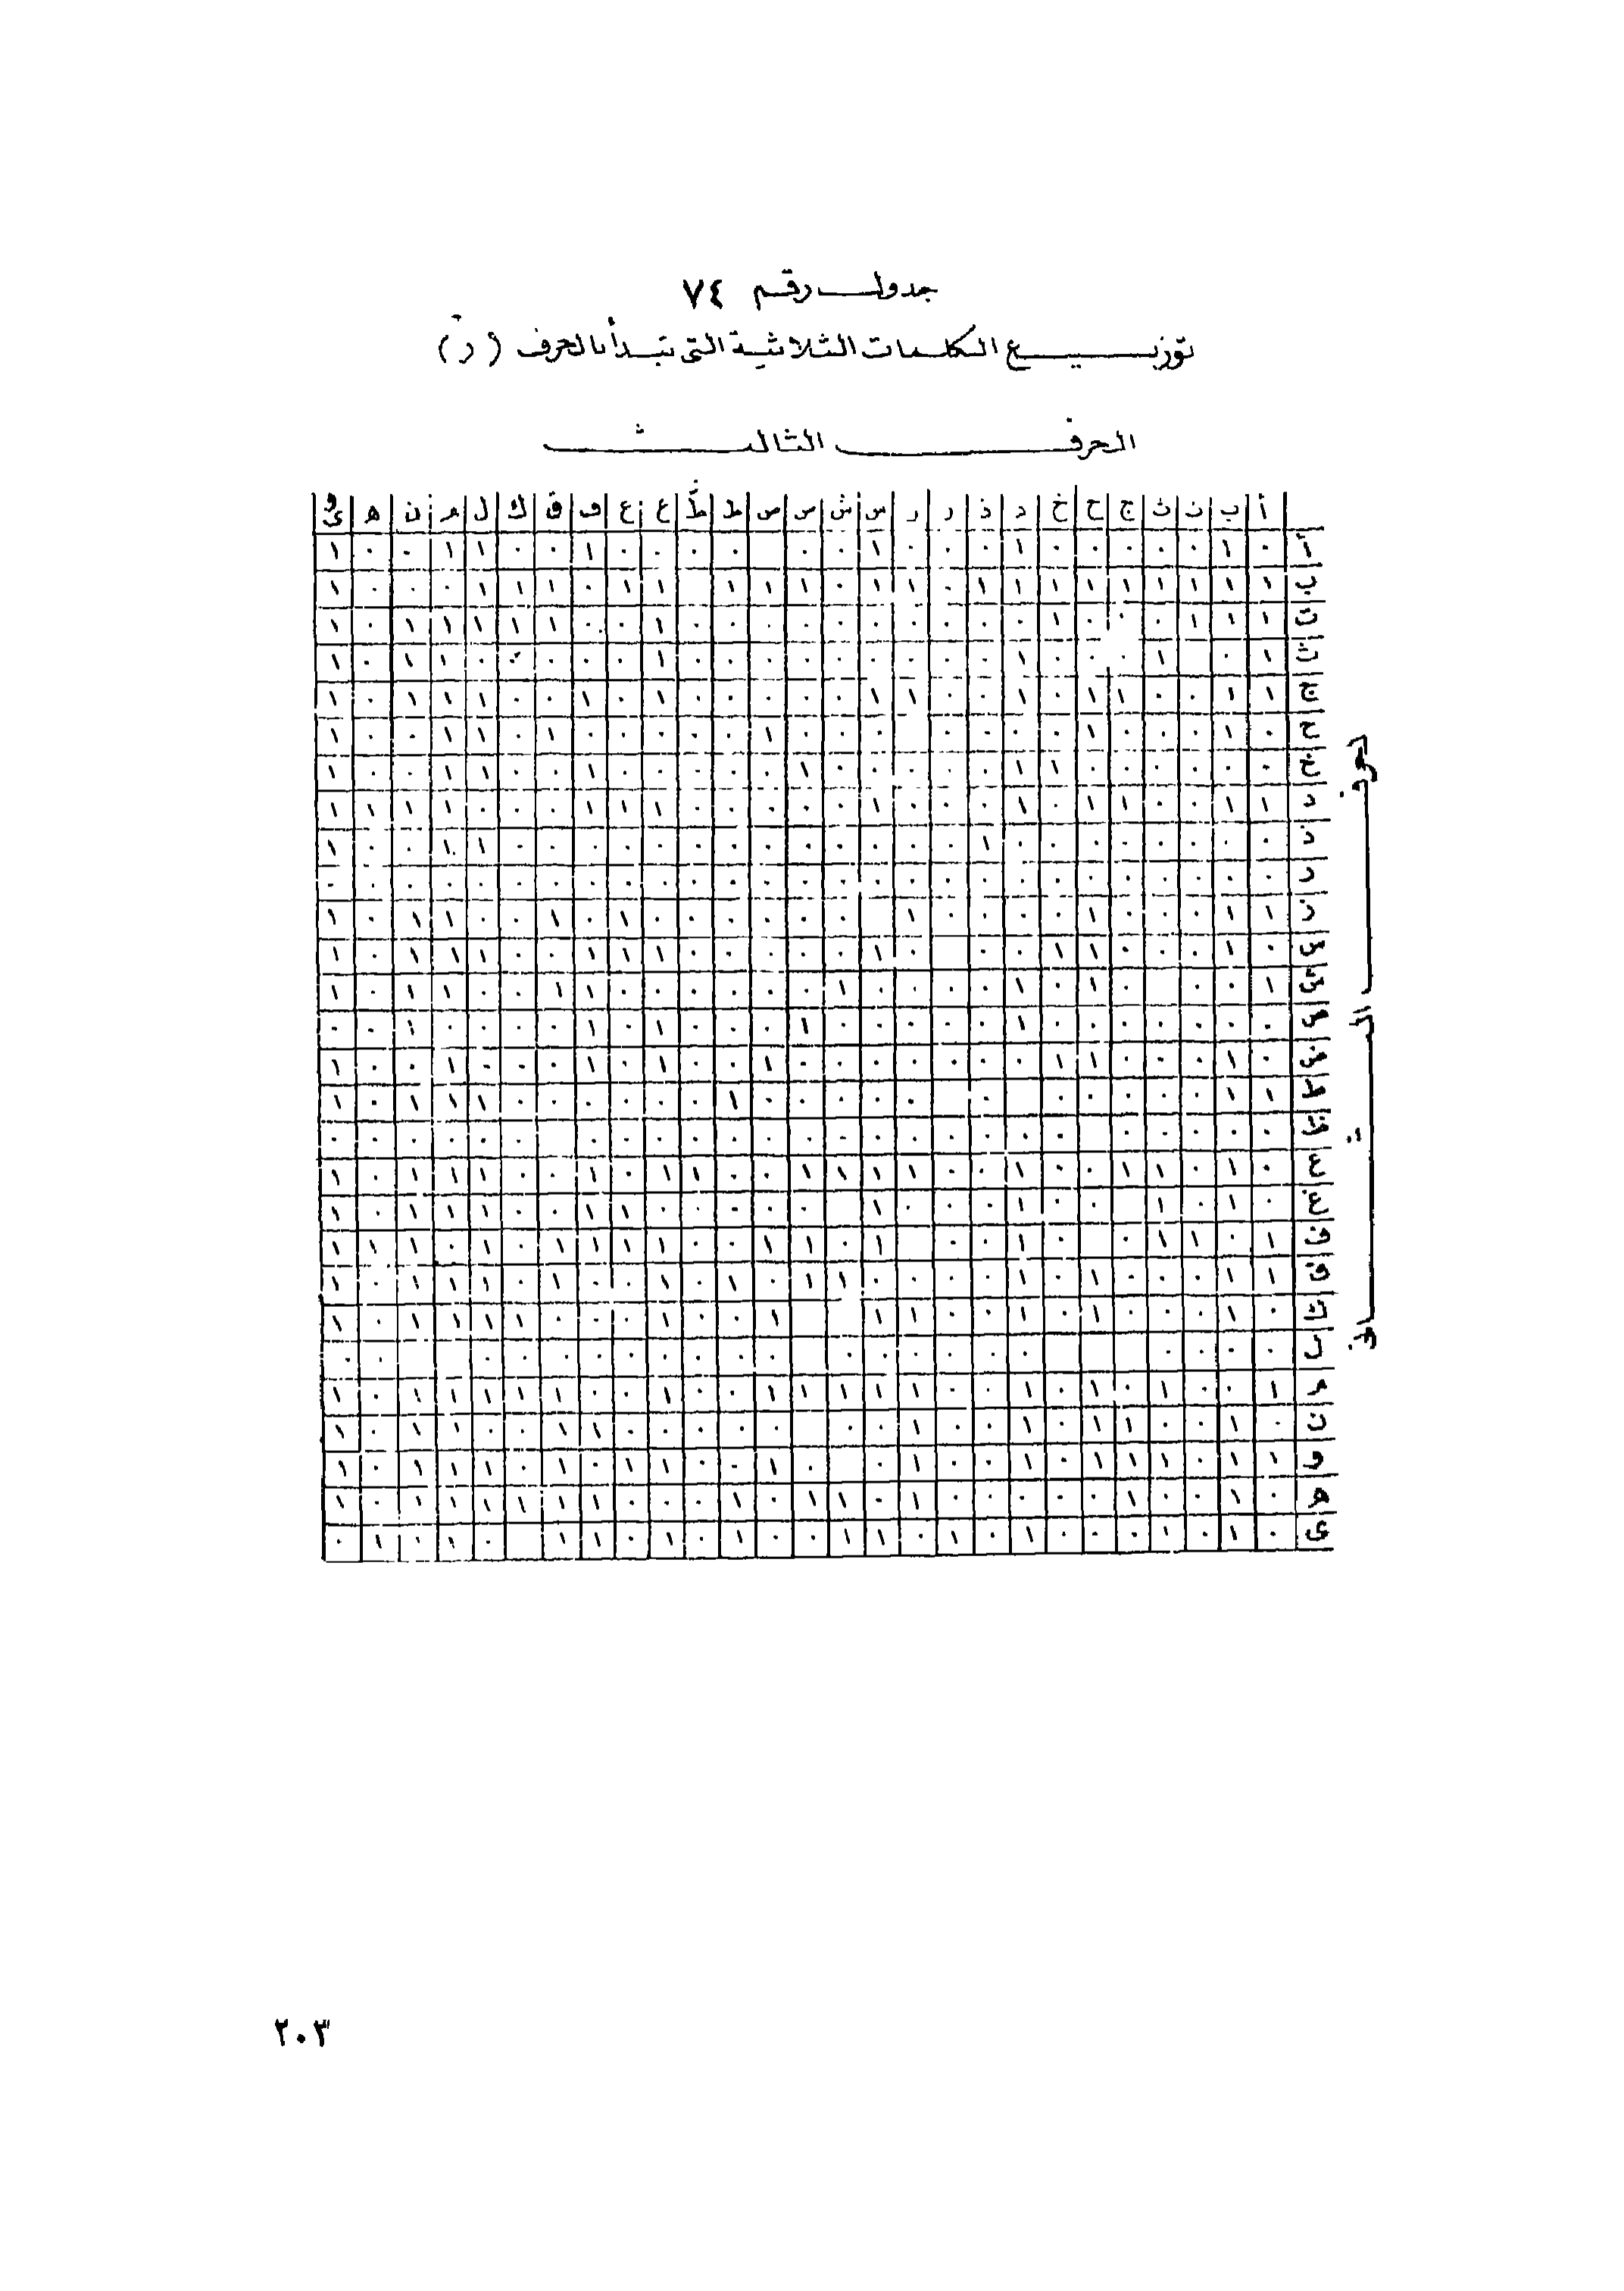 جدول رقم ٧٤
توزيع الكلمات الثلاثية التى تبدأ بالحرف (ر)
الحرف الثالث
أ ب ت ث ج ح خ د ذ ر ر س ش ص ص ط ظ ع غ ف ق ك ل م ن ه و ى
أ ٠ ١ ٠ ٠ ٠ ٠ ٠ ١ ٠ ٠ ٠ ١ ٠ ٠ ٠ ٠ ٠ ٠ ٠ ١ ٠ ٠ ١ ١ ٠ ٠ ١
ب ١ ١ ١ ١ ١ ١ ١ ١ ١ ٠ ١ ١ ٠ ١ ١ ١ ١ ١ ٠ ١ ١ ١ ٠ ٠ ٠ ١
ت ١ ١ ١ ٠ ٠ ٠ ١ ٠ ٠ ٠ ٠ ٠ ٠ ٠ ٠ ٠ ٠ ١ ٠ ٠ ١ ١ ١ ١ ١ ٠ ١
ث ١ ٠ ١ ٠ ٠ ٠ ١ ٠ ٠ ٠ ٠ ٠ ٠ ٠ ٠ ٠ ١ ٠ ٠ ٠ ٠ ٠ ١ ١ ٠ ١
ج ١ ١ ٠ ٠ ١ ١ ٠ ١ ٠ ٠ ١ ١ ٠ ٠ ٠ ٠ ٠ ١ ٠ ١ ٠ ٠ ١ ١ ١ ٠ ١
ح ٠ ١ ٠ ٠ ٠ ١ ٠ ٠ ٠ ٠ ٠ ٠ ٠ ١ ٠ ٠ ٠ ٠ ٠ ١ ٠ ١ ١ ٠ ٠ ١
خ ٠ ٠ ٠ ٠ ٠ ٠ ١ ١ ٠ ٠ ٠ ٠ ٠ ١ ٠ ٠ ٠ ٠ ٠ ١ ٠ ٠ ١ ١ ٠ ٠ ١
د ١ ١ ٠ ٠ ١ ١ ٠ ١ ٠ ٠ ٠ ١ ٠ ٠ ٠ ٠ ٠ ١ ١ ١ ٠ ٠ ٠ ١ ١ ١ ١
ذ ٠ ٠ ٠ ٠ ٠ ٠ ٠ ٠ ١ ٠ ٠ ٠ ٠ ٠ ٠ ٠ ٠ ٠ ٠ ٠ ٠ ٠ ١ ١ ٠ ٠ ١
ر ٠ ٠ ٠ ٠ ٠ ٠ ٠ ٠ ٠ ٠ ٠ ٠ ٠ ٠ ٠ ٠ ٠ ٠ ٠ ٠ ٠ ٠ ٠ ٠ ٠ ٠ ٠
ز ١ ١ ٠ ٠ ٠ ١ ٠ ٠ ٠ ٠ ١ ٠ ٠ ٠ ٠ ٠ ٠ ١ ٠ ١ ٠ ٠ ١ ١ ٠ ١
س ٠ ١ ٠ ٠ ٠ ١ ١ ٠ ٠ ٠ ١ ٠ ٠ ٠ ٠ ٠ ١ ١ ١ ٠ ٠ ١ ١ ١ ٠ ١
ش ١ ٠ ٠ ٠ ١ ٠ ١ ٠ ٠ ٠ ٠ ١ ٠ ٠ ٠ ٠ ٠ ٠ ١ ١ ٠ ٠ ١ ١ ٠ ١
ص ٠ ٠ ٠ ٠ ٠ ٠ ٠ ١ ٠ ٠ ٠ ٠ ٠ ١ ٠ ٠ ٠ ١ ٠ ١ ٠ ٠ ٠ ٠ ١ ٠ ٠
ض ٠ ١ ٠ ٠ ٠ ١ ١ ٠ ٠ ٠ ٠ ٠ ٠ ٠ ١ ٠ ٠ ١ ٠ ١ ٠ ٠ ٠ ١ ٠ ٠ ١
ط ١ ١ ٠ ٠ ٠ ٠ ٠ ٠ ٠ ٠ ٠ ٠ ٠ ١ ٠ ٠ ٠ ٠ ٠ ٠ ١ ١ ١ ٠ ١
ظ ٠ ٠ ٠ ٠ ٠ ٠ ٠ ٠ ٠ ٠ ٠ ٠ ٠ ٠ ٠ ٠ ٠ ٠ ٠ ٠ ٠ ٠ ٠ ٠ ٠
ع ٠ ١ ٠ ١ ١ ٠ ٠ ١ ٠ ٠ ١ ١ ١ ١ ٠ ٠ ١ ١ ٠ ١ ٠ ٠ ١ ١ ١ ٠ ١
غ ٠ ١ ٠ ١ ٠ ٠ ٠ ١ ٠ ٠ ٠ ١ ٠ ٠ ٠ ٠ ٠ ١ ١ ٠ ٠ ١ ١ ١ ٠ ١
ف ١ ٠ ١ ١ ٠ ٠ ١ ٠ ٠ ١ ٠ ١ ١ ٠ ٠ ١ ١ ١ ١ ٠ ١ ٠ ١ ١ ١
ق ١ ١ ٠ ٠ ٠ ١ ٠ ١ ٠ ٠ ٠ ٠ ١ ١ ٠ ١ ٠ ١ ٠ ٠ ١ ٠ ١ ١ ١ ٠ ١
ك ٠ ١ ٠ ٠ ٠ ١ ٠ ١ ٠ ٠ ١ ١ ١ ٠ ٠ ١ ٠ ٠ ٠ ١ ١ ١ ١ ٠ ١
ل ٠ ٠ ٠ ٠ ٠ ٠ ٠ ٠ ٠ ٠ ٠ ٠ ٠ ٠ ٠ ٠ ٠ ٠ ٠ ٠ ٠
م ١ ٠ ٠ ١ ٠ ١ ٠ ١ ٠ ٠ ١ ١ ١ ١ ١ ٠ ٠ ١ ٠ ٠ ١ ١ ١ ١ ١ ٠ ١
ن ٠ ١ ٠ ٠ ١ ١ ٠ ١ ٠ ٠ ١ ٠ ٠ ٠ ٠ ٠ ٠ ٠ ١ ١ ٠ ٠ ١ ١ ٠ ١
و ١ ١ ٠ ١ ١ ١ ٠ ١ ٠ ٠ ١ ٠ ٠ ١ ٠ ٠ ١ ١ ٠ ١ ٠ ١ ١ ١ ٠ ١
ه ٠ ١ ٠ ٠ ١ ٠ ٠ ٠ ٠ ٠ ١ ٠ ١ ١ ٠ ١ ٠ ٠ ٠ ١ ١ ١ ١ ١ ١ ٠ ١
ي ٠ ١ ٠ ١ ٠ ٠ ٠ ١ ٠ ١ ٠ ١ ١ ٠ ٠ ١ ٠ ١ ٠ ١ ١ ٠ ١ ٠ ١ ٠
٢٠٣